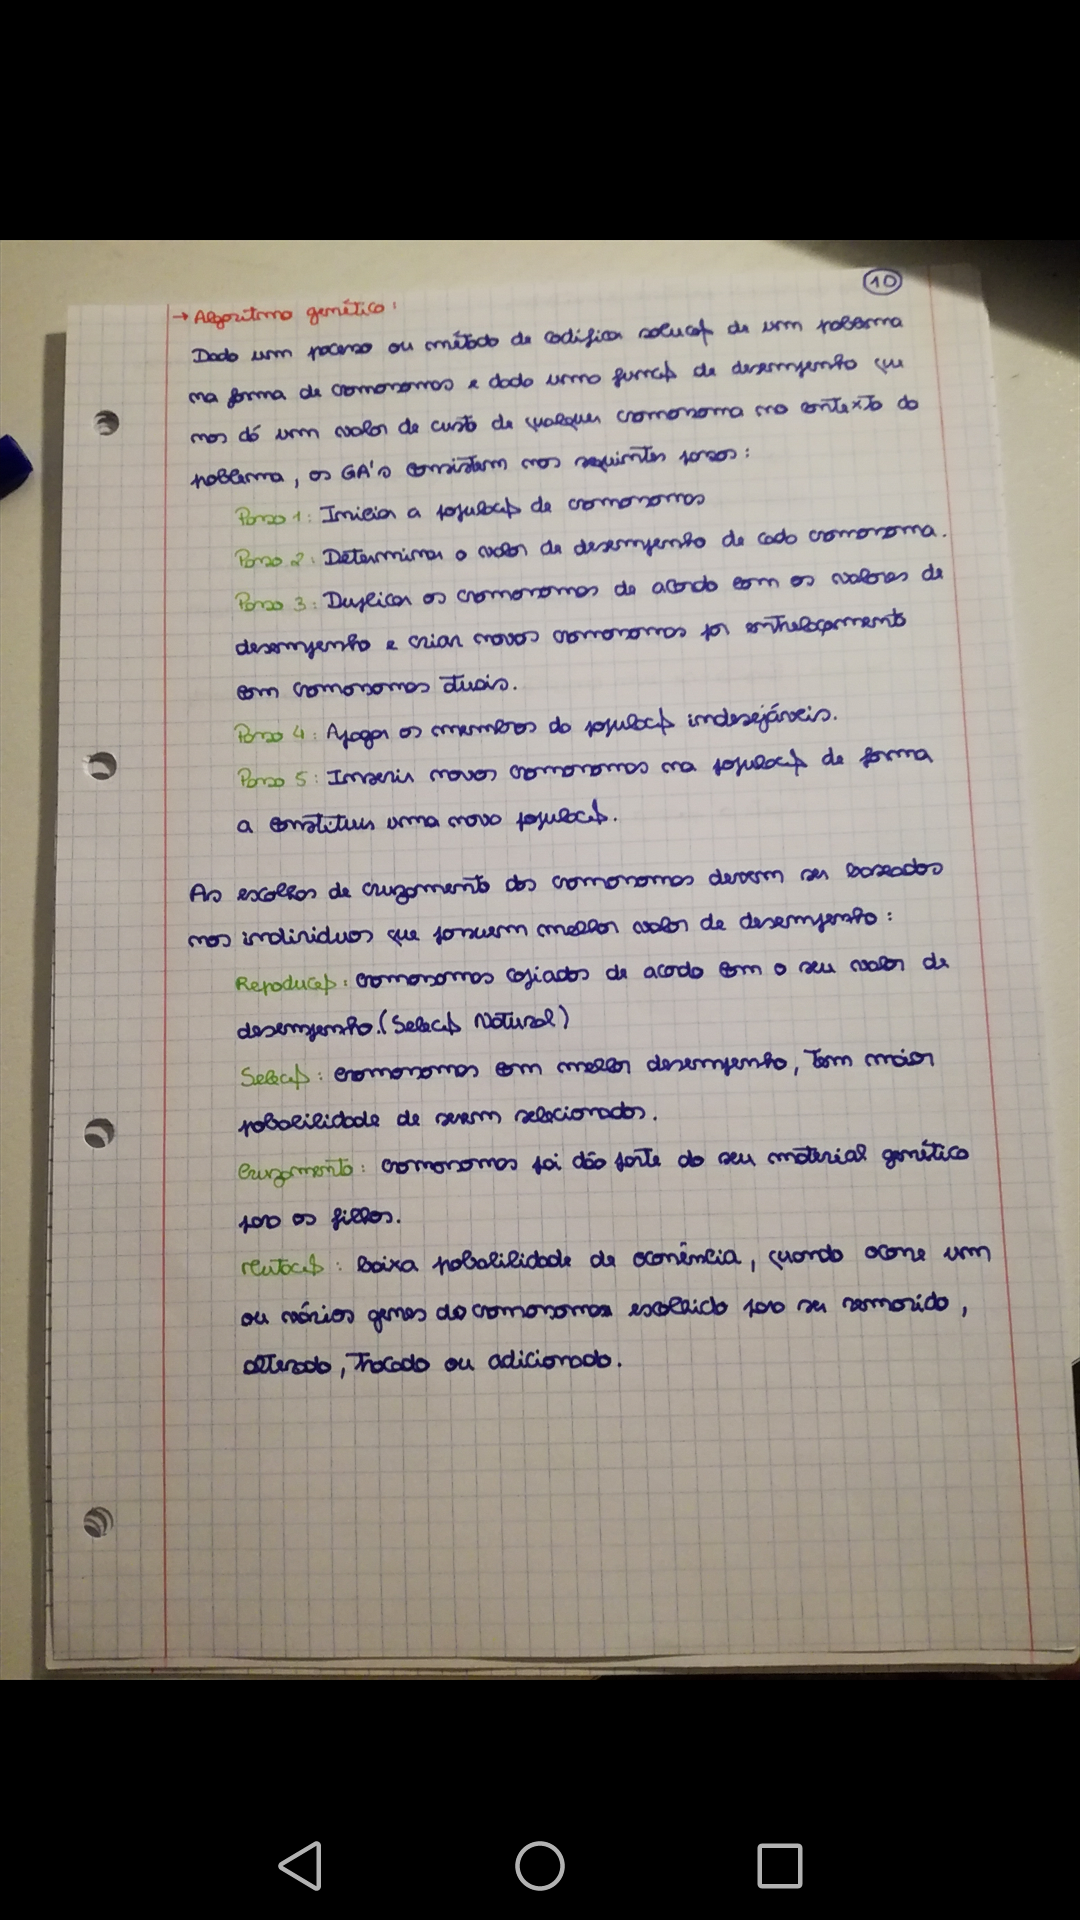 10
→ Algoritmo genético:
Dado um processo ou método de codifica solução de um problema
na forma de cromossomas e dado uma função de desempenho que
nos dá um valor de custo de qualquer cromossoma no contexto do
problema, os GA's consistem nos seguintes passos:
Passo 1: Iniciar a população de cromossomas
Passo 2: Determinar o valor de desempenho de cada cromossoma.
Passo 3: Duplicar os cromossomas de acordo com os valores de
desempenho e criar novos cromossomas por entrelaçamento
com cromossomas atuais.
Passo 4: Apagar os membros da população indesejáveis.
Passo 5: Inserir novos cromossomas na população de forma
a constituir uma nova população.
As escolhas de cruzamento dos cromossomas devem ser baseados
nos individuos que possuem melhor valor de desempenho:
Reprodução: cromossomas copiados de acordo com o seu valor de
desempenho. (Seleção Natural)
Seleção: cromossomas com melhor desempenho, tem maior
probabilidade de serem selecionados.
Cruzamento: cromossomas pai dão parte do seu material genético
para os filhos.
Mutação: baixa probabilidade de ocorrência, quando ocorre um
ou vários genes do cromossoma escolhido para ser removido,
alterado, trocado ou adicionado.